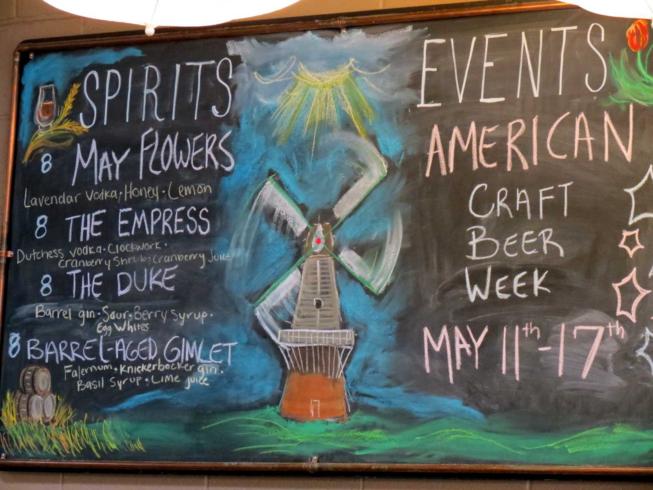 SPIRITS
8 MAY FLOWERS
Lavendar Vodka · Honey · Lemon
8 THE EMPRESS
Dutchess vodka · Clockwork ·
Cranberry Shrub · Cranberry Juice
8 THE DUKE
Barrel gin · Sour · Berry Syrup ·
Egg Whites
8 BARREL-AGED GIMLET
Falernum · Knickerbocker gin ·
Basil Syrup · Lime juice
EVENTS
AMERICAN
CRAFT
BEER
WEEK
MAY 11th-17th